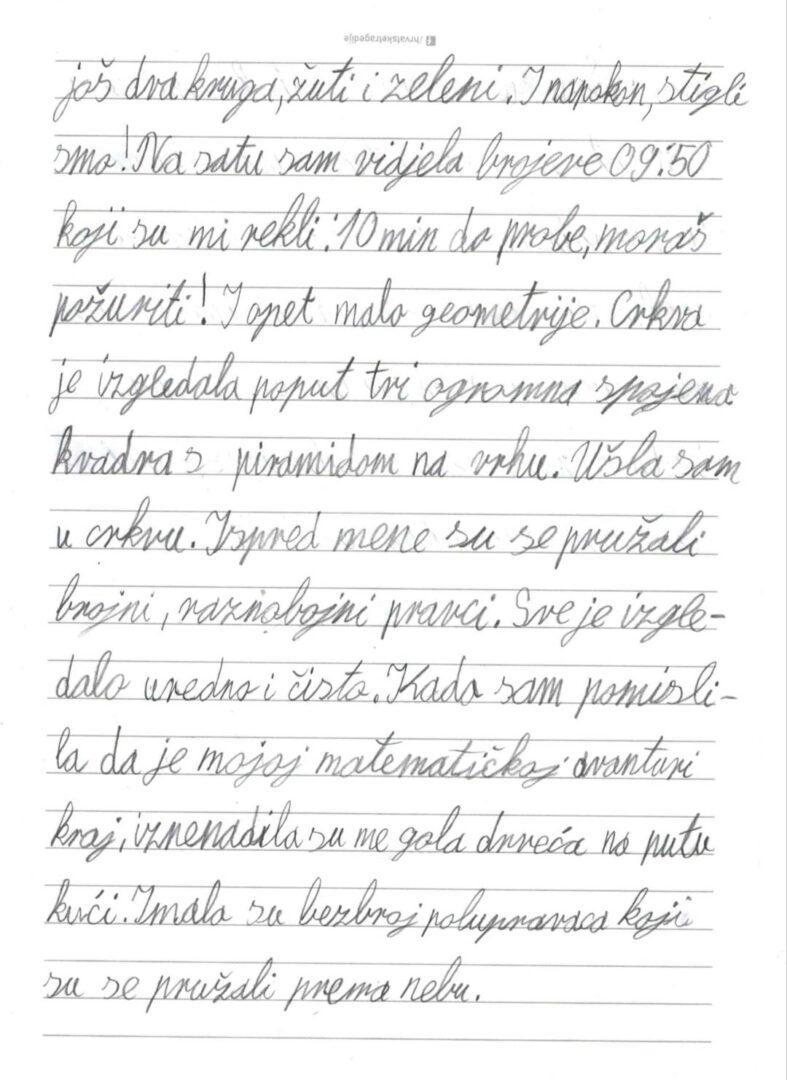 /hrvatsketragedije
još dva kruga, žuti i zeleni. I napokon, stigli
smo! Na satu sam vidjela brojeve 09:50
koji su mi rekli: 10 min do probe, moraš
požuriti! I opet malo geometrije. Crkva
je izgledala poput tri ogromna spojena
kvadra s piramidom na vrhu. Ušla sam
u crkvu. Ispred mene su se pružali
brojni, raznobojni pravci. Sve je izgle-
dalo uredno i čisto. Kada sam pomisli-
la da je mojoj matematičkoj avanturi
kraj, iznenadila su me gola drveća na putu
kući. Imala su bezbroj polupravaca koji
su se pružali prema nebu.